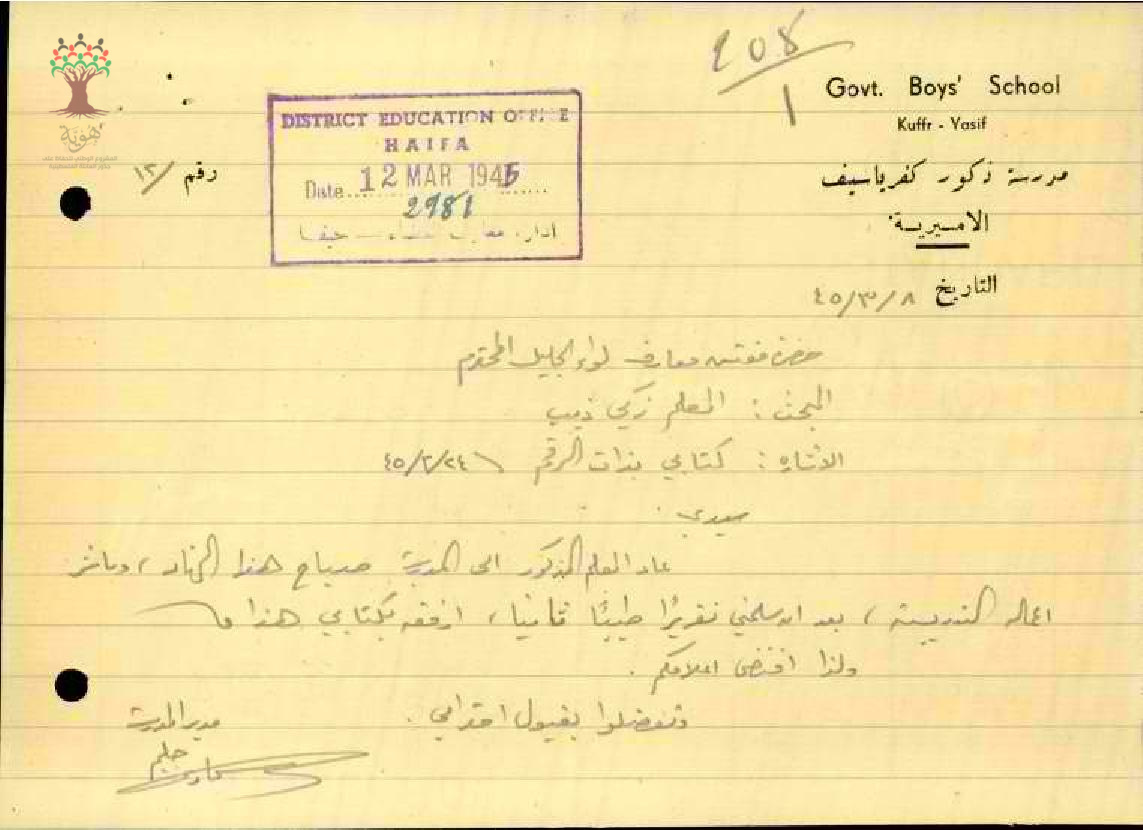 208
1
Govt. Boys' School
Kuffr - Yasif
مدرسة ذكور كفرياسيف
الاميرية
رقم /١٣
DISTRICT EDUCATION OFFICE
HAIFA
Date 12 MAR 1945
2981
ادارة معارف لواء حيفا
التاريخ ٤٥/٣/٨
هوية
حضرة مفتش معارف لواء الجليل المحترم
المبحث: المعلم زكي ذيب
الاشارة: كتابي بذات الرقم ٤٥/٢/٢٤
سيدي.
عاد المعلم المذكور الى المدرسة صباح هذا النهار، وباشر
اعماله التدريسية، بعد ان سلمني تقريرًا طبيًا ثانيا، ارفقه بكتابي هذا
ولذا اقتضى اعلامكم.
وتفضلوا بقبول احترامي.
مدير المدرسة
حليم